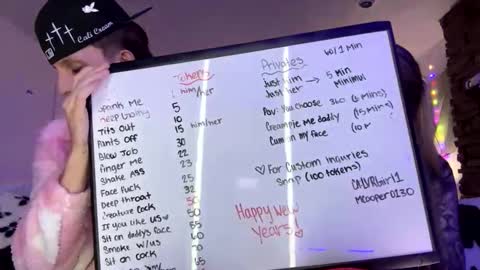 Cali Cream
Tokens
him/her
Spank Me 5
Keep Going 10
Tits Out 15 him/her
Pants Off 30
Blow Job 22
Finger Me 23
Shake Ass 25
Face Fuck 32
Deep throat 50
Creature Cock 50
If you like us 55
Sit on daddy's face
Smoke w/us
Sit on Cock
Privates w/1 Min
Just him → 5 Min
Just her Minimum
Pov: You choose 360 (6 Mins)
Creampie Me daddy (15 Mins)
Cum on my face
For Custom Inquries
Snap (100 tokens)
Mcooper0130
Happy New
Years!